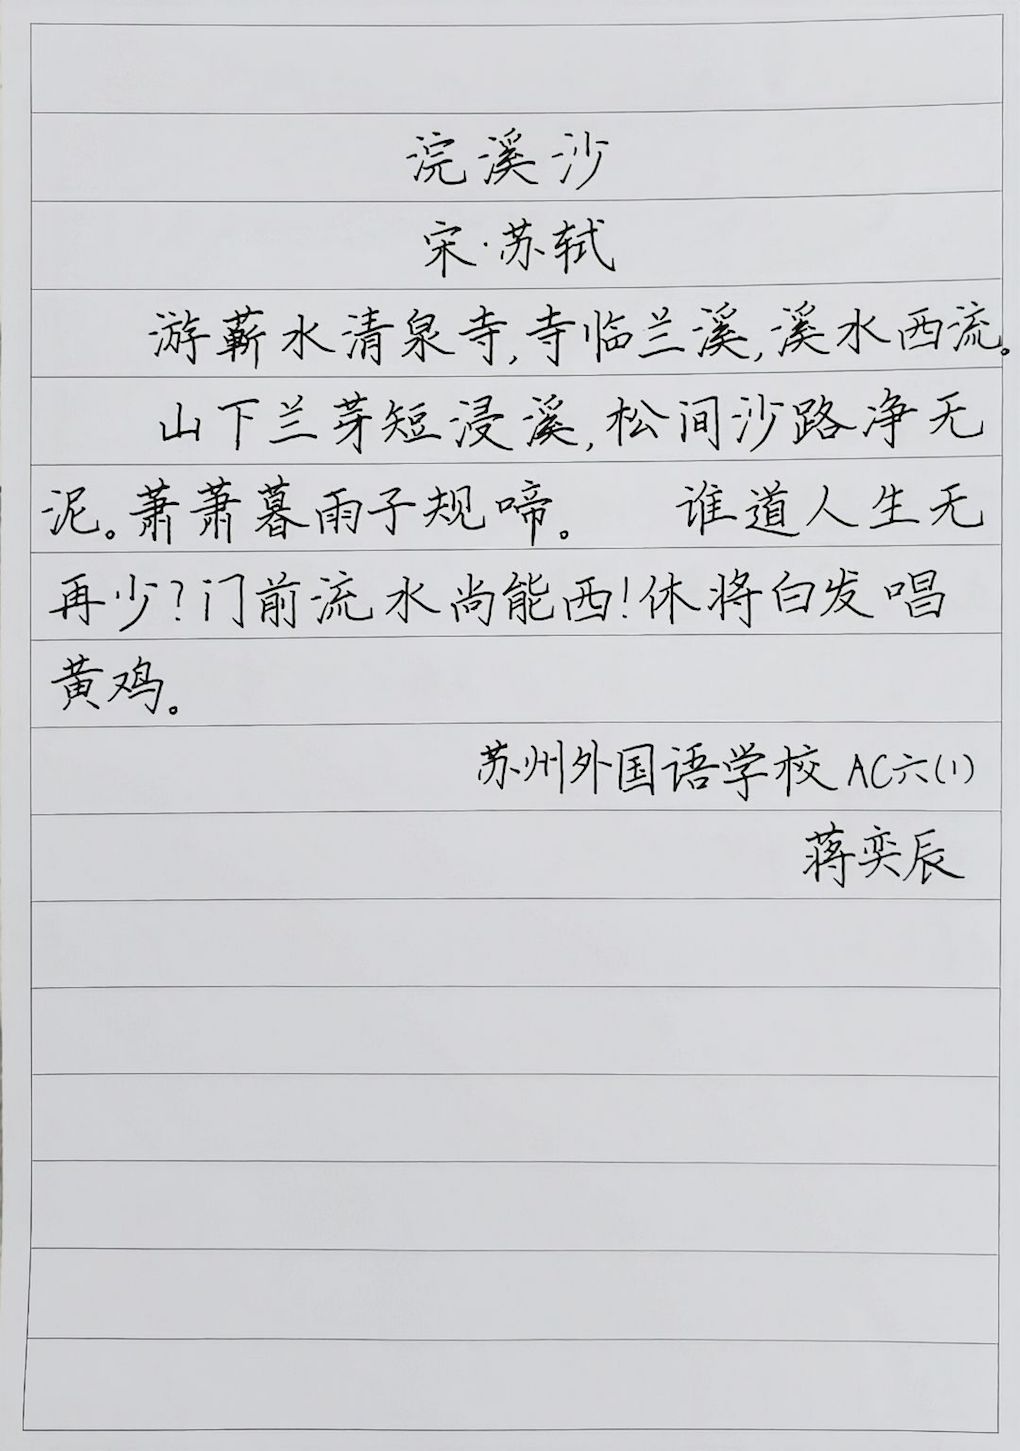 浣溪沙
宋·苏轼
游蕲水清泉寺,寺临兰溪,溪水西流。
山下兰芽短浸溪,松间沙路净无
泥。萧萧暮雨子规啼。 谁道人生无
再少?门前流水尚能西!休将白发唱
黄鸡。
苏州外国语学校AC六(1)
蒋奕辰